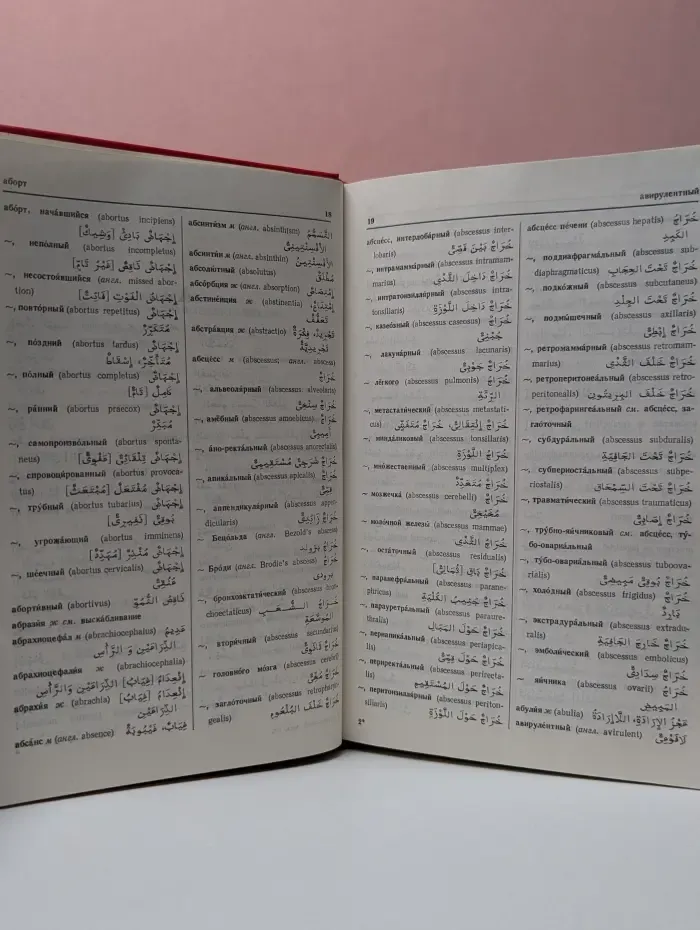 аборт
18
або́рт, нача́вшийся (abortus incipiens)
إِجْهَاضٌ بَادِئٌ [وَشِيكٌ]
~, непо́лный (abortus
incompletus) إِجْهَاضٌ نَاقِصٌ [غَيْرُ تَامٍّ]
~, несостоя́вшийся (англ. missed abor-
tion) إِجْهَاضُ الْفَوْتِ [فَائِتٌ]
~, повто́рный (abortus repetitus) إِجْهَاضٌ
مُتَكَرِّرٌ
~, по́здний (abortus tardus) إِجْهَاضٌ
مُتَأَخِّرٌ، إِسْقَاطٌ
~, по́лный (abortus completus) إِجْهَاضٌ
كَامِلٌ [تَامٌّ]
~, ра́нний (abortus praecox) إِجْهَاضٌ
مُبَكِّرٌ
~, самопроизво́льный (abortus sponta-
neus) إِجْهَاضٌ تِلْقَائِيٌّ [عَفْوِيٌّ]
~, спровоци́рованный (abortus provoca-
tus) إِجْهَاضٌ مُفْتَعَلٌ [مُبْتَعَثٌ]
~, тру́бный (abortus tubarius) إِجْهَاضٌ
بُوقِيٌّ [نَفِيرِيٌّ]
~, угрожа́ющий (abortus imminens)
إِجْهَاضٌ مُنْذِرٌ [مُهَدِّدٌ]
~, ше́ечный (abortus cervicalis) إِجْهَاضٌ
عُنُقِيٌّ
аборти́вный (abortivus) نَاقِصُ النُّمُوِّ
абра́зия ж см. выска́бливание
абрахиоцефа́л м (abrachiocephalus) عَدِيمُ
الذِّرَاعَيْنِ وَ الرَّأْسِ
абрахиоцефали́я ж (abrachiocephalia)
اِنْعِدَامُ [غِيَابُ] الذِّرَاعَيْنِ وَالرَّأْسِ
абрахи́я ж (abrachia) اِنْعِدَامُ [غِيَابُ]
الذِّرَاعَيْنِ
абса́нс м (англ. absence) غِيَابٌ، غَيْبُوبَةٌ
абсинти́зм м (англ. absinthism) التَّسَمُّمُ
الأَفْسِنْتِينِيُّ
абсинти́н м (англ. absinthin) الأَفْسِنْتِينُ
абсолю́тный (absolutus) مُطْلَقٌ
абсо́рбция ж (англ. absorption) اِمْتِصَاصٌ
абстине́нция ж (abstinentia) اِمْتِنَاعٌ،
تَعَفُّفٌ
абстра́кция ж (abstractio) تَجْرِيدٌ، فِكْرَةٌ
تَجْرِيدِيَّةٌ
абсце́сс м (abscessus; англ. abscess)
خُرَاجٌ
~, альвеоля́рный (abscessus alveolaris)
خُرَاجٌ سِنْخِيٌّ
~, амёбный (abscessus amoebicus) خُرَاجٌ
أَمِيبِيٌّ
~, а́но-ректа́льный (abscessus anorectalis)
خُرَاجٌ شَرَجِيٌّ مُسْتَقِيمِيٌّ
~, апика́льный (abscessus apicalis) خُرَاجٌ
قِمِّيٌّ
~, аппендикуля́рный (abscessus appen-
dicularis) خُرَاجٌ زَائِدِيٌّ
~ Бецо́льда (англ. Bezold's abscess)
خُرَاجُ بِزُولْد
~ Бро́ди (англ. Brodie's abscess) خُرَاجُ
بْرُودِي
~, бронхоэктати́ческий (abscessus bron-
choectaticus) خُرَاجُ الشُّعَبِ
الْمُوَسَّعَةِ
~, втори́чный (abscessus secundaris)
خُرَاجٌ ثَانَوِيٌّ
~ головно́го мо́зга (abscessus cerebri)
خُرَاجٌ مُخِّيٌّ
~, загло́точный (abscessus retropharyn-
gealis) خُرَاجُ خَلْفِ الْبُلْعُومِ
19
авирулентный
абсце́сс, интерлоба́рный (abscessus inter-
lobaris) خُرَاجٌ بَيْنَ فَصَّيْنِ
~, интрамамма́рный (abscessus intramam-
marius) خُرَاجٌ دَاخِلَ الثَّدْيِ
~, интратонзилля́рный (abscessus intra-
tonsillaris) خُرَاجٌ دَاخِلَ اللَّوْزَةِ
~, казео́зный (abscessus caseosus) خُرَاجٌ
جُبْنِيٌّ
~, лакуна́рный (abscessus lacunaris)
خُرَاجٌ جَوْبِيٌّ
~ лёгкого (abscessus pulmonis) خُرَاجُ
الرِّئَةِ
~, метастати́ческий (abscessus metastati-
cus) خُرَاجٌ اِنْتِقَالِيٌّ، خُرَاجٌ مُتَفَشٍّ
~, миндаликовый (abscessus tonsillaris)
خُرَاجُ اللَّوْزَةِ
~, мно́жественный (abscessus multiplex)
خُرَاجٌ مُتَعَدِّدٌ
~ мозжечка́ (abscessus cerebelli) خُرَاجٌ
مُخَيْخِيٌّ
~ моло́чной железы́ (abscessus mammae)
خُرَاجُ الثَّدْيِ
~, оста́точный (abscessus residualis)
خُرَاجٌ بَاقٍ [ثُمَالِيٌّ]
~, паранефра́льный (abscessus parane-
phricus) خُرَاجُ جَنِيبِ الْكُلْيَةِ
~, парауретра́льный (abscessus paraure-
thralis) خُرَاجُ حَوْلَ الْمَبَالِ
~, периапика́льный (abscessus periapica-
lis) خُرَاجٌ حَوْلَ قِمِّيٍّ
~, периректа́льный (abscessus perirecta-
lis) خُرَاجُ حَوْلَ الْمُسْتَقِيمِ
~, перитонзилля́рный (abscessus periton-
sillaris) خُرَاجُ حَوْلَ اللَّوْزَةِ
2*
абсце́сс пе́чени (abscessus hepatis) خُرَاجُ
الْكَبِدِ
~, поддиафрагма́льный (abscessus sub-
diaphragmaticus) خُرَاجُ تَحْتَ الْحِجَابِ
~, подко́жный (abscessus subcutaneus)
خُرَاجُ تَحْتَ الْجِلْدِ
~, подмы́шечный (abscessus axillaris)
خُرَاجٌ إِبْطِيٌّ
~, ретромамма́рный (abscessus retromam-
marius) خُرَاجُ خَلْفَ الثَّدْيِ
~, ретроперитонеа́льный (abscessus retro-
peritonealis) خُرَاجُ خَلْفَ الْبِرِيتُونِ
~, ретрофарингеа́льный см. абсце́сс, за-
гло́точный
~, субдура́льный (abscessus subduralis)
خُرَاجُ تَحْتَ الْجَافِيَةِ
~, субпериоста́льный (abscessus subpe-
riostalis) خُرَاجُ تَحْتَ السِّمْحَاقِ
~, травмати́ческий (abscessus traumaticus)
خُرَاجٌ إِصَابِيٌّ
~, тру́бно-яи́чниковый см. абсце́сс, ту́-
бо-овариа́льный
~, ту́бо-овариа́льный (abscessus tuboova-
rialis) خُرَاجٌ بُوقِيٌّ مَبِيضِيٌّ
~, холо́дный (abscessus frigidus) خُرَاجٌ
بَارِدٌ
~, экстрадура́льный (abscessus extradu-
ralis) خُرَاجُ خَارِجَ الْجَافِيَةِ
~, эмболи́ческий (abscessus embolicus)
خُرَاجٌ سِدَادِيٌّ
~ яи́чника (abscessus ovarii) خُرَاجُ
الْمَبِيضِ
абули́я ж (abulia) عَجْزُ الإِرَادَةِ، اللاَّإِرَادَةُ
авируле́нтный (англ. avirulent) لاَفَوْعِيٌّ